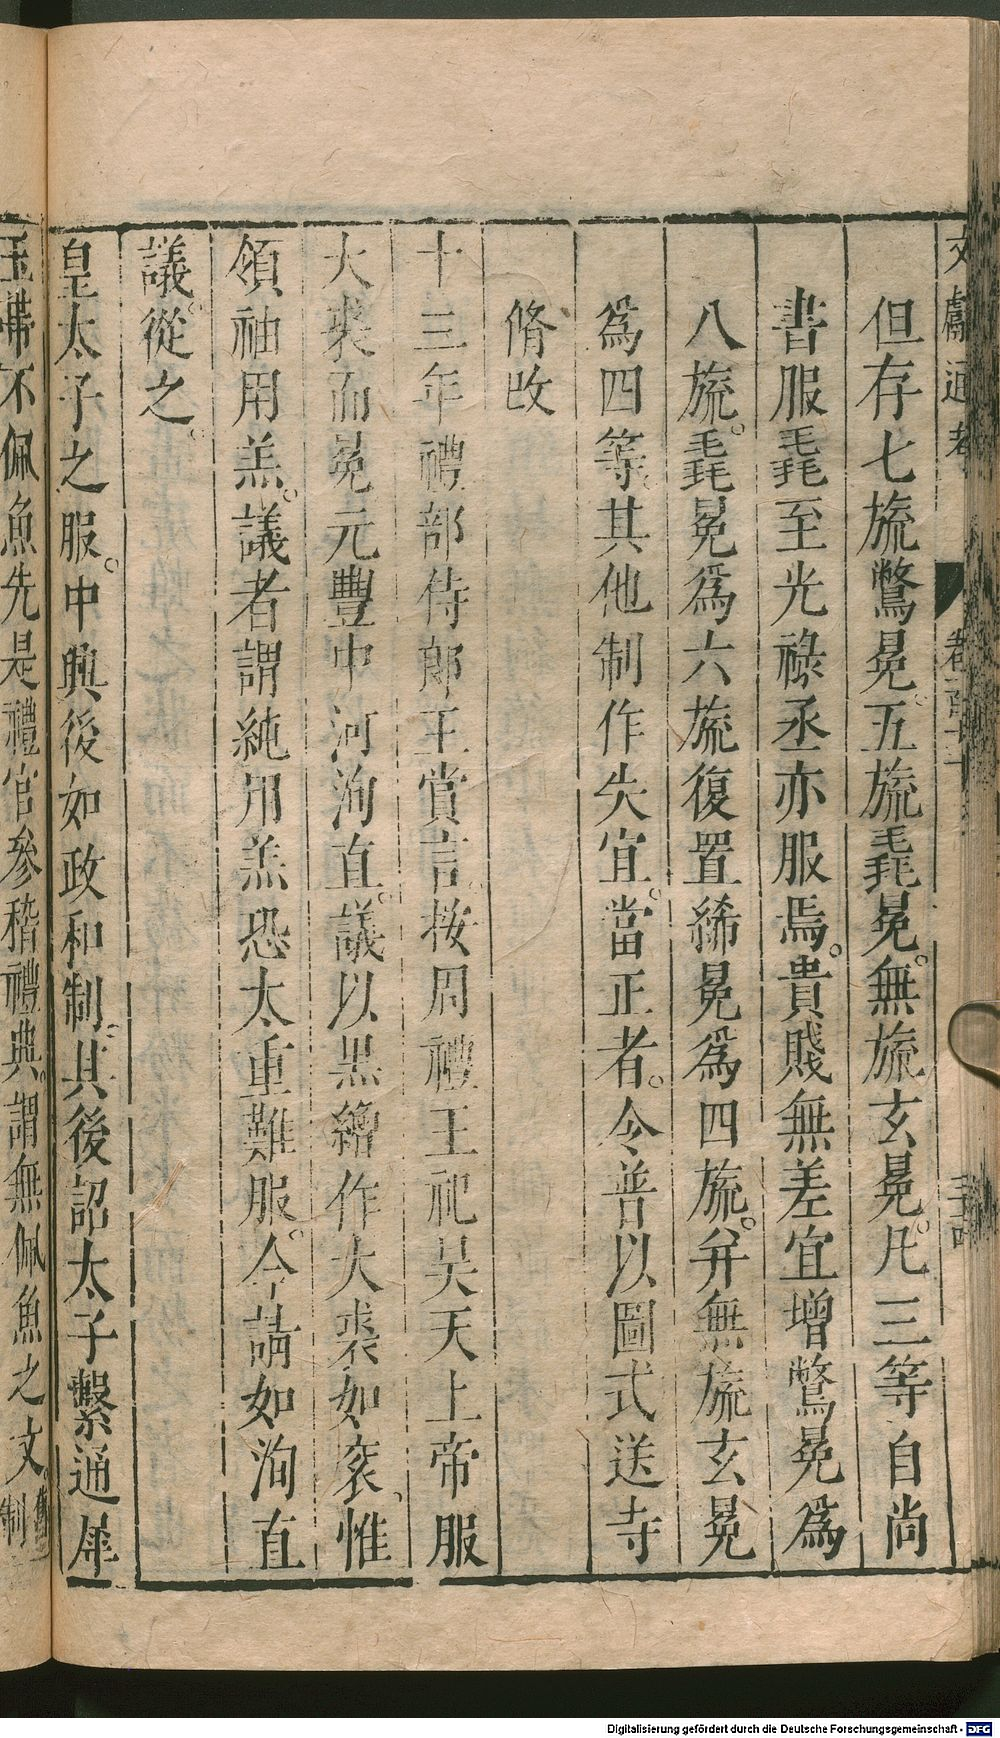 文獻通考 卷一百十三 三十四
但存七旒鷩冕。五旒毳冕。無旒玄冕。凡三等自尚
書服毳至光祿丞亦服焉。貴賤無差宜增鷩冕爲
八旒。毳冕爲六旒復置絺冕爲四旒。弁無旒玄冕
爲四等。其他制作失宜。當正者。令普以圖式送寺
脩改
十三年禮部侍郎王賞言。按周禮王祀昊天上帝服
大裘而冕元豐中河洵直。議以黑繒作大裘如衮。惟
領袖用羔。議者謂純用羔恐太重難服。今請如洵直
議。從之。
皇太子之服。中興後如政和制。其後詔太子繫通犀
玉帶不佩魚先是禮官參稽禮典。謂無佩魚之文。舊制
Digitalisierung gefördert durch die Deutsche Forschungsgemeinschaft - DFG